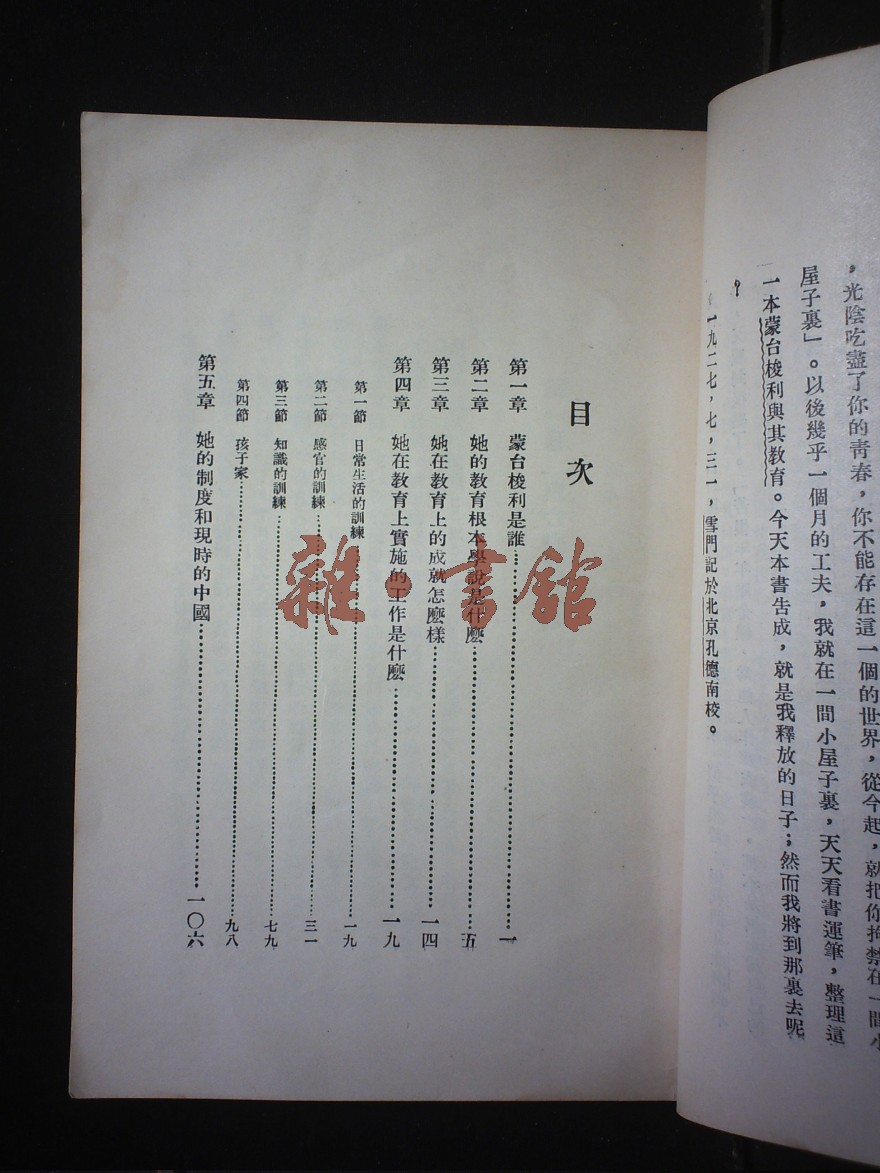 ，光陰吃盡了你的青春，你不能存在這一個的世界，從今起，就把你拘禁在一間小
屋子裏」。以後幾乎一個月的工夫，我就在一間小屋子裏，天天看書運筆，整理這
一本蒙台梭利與其教育。今天本書告成，就是我釋放的日子；然而我將到那裏去呢
？
一九二七，七，三一，雪門記於北京孔德南校。
目次
第一章 蒙台梭利是誰…………一
第二章 她的教育根本學說是什麼…………五
第三章 她在教育上的成就怎麼樣…………一四
第四章 她在教育上實施的工作是什麼…………一九
第一節 日常生活的訓練…………一九
第二節 感官的訓練…………三一
第三節 知識的訓練…………七九
第四節 孩子家…………九八
第五章 她的制度和現時的中國…………一〇六
雜·書館